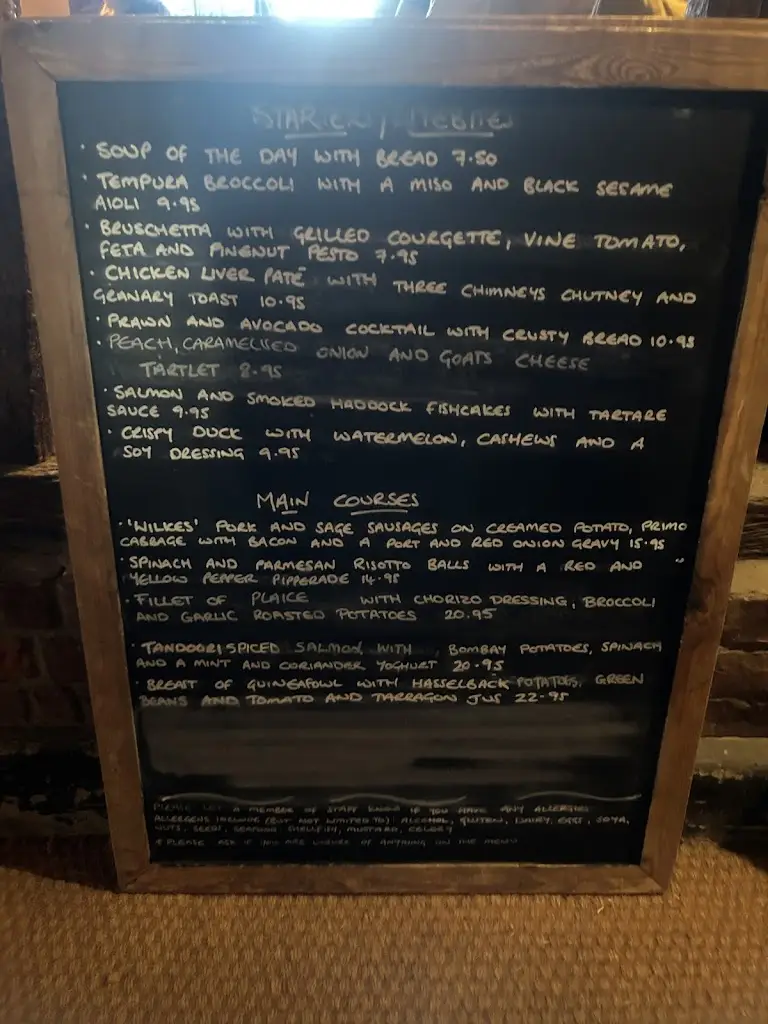 STARTERS / LITEBITES
· SOUP OF THE DAY WITH BREAD 7.50
· TEMPURA BROCCOLI WITH A MISO AND BLACK SESAME
AIOLI 9.95
· BRUSCHETTA WITH GRILLED COURGETTE, VINE TOMATO,
FETA AND PINENUT PESTO 7.95
· CHICKEN LIVER PATÉ WITH THREE CHIMNEYS CHUTNEY AND
GRANARY TOAST 10.95
· PRAWN AND AVOCADO COCKTAIL WITH CRUSTY BREAD 10.95
· PEACH, CARAMELISED ONION AND GOATS CHEESE
TARTLET 8.95
· SALMON AND SMOKED HADDOCK FISHCAKES WITH TARTARE
SAUCE 9.95
· CRISPY DUCK WITH WATERMELON, CASHEWS AND A
SOY DRESSING 9.95
MAIN COURSES
· 'WILKES' PORK AND SAGE SAUSAGES ON CREAMED POTATO, PRIMO
CABBAGE WITH BACON AND A PORT AND RED ONION GRAVY 15.95
· SPINACH AND PARMESAN RISOTTO BALLS WITH A RED AND
YELLOW PEPPER PIPPERADE 14.95
· FILLET OF PLAICE WITH CHORIZO DRESSING, BROCCOLI
AND GARLIC ROASTED POTATOES 20.95
· TANDOORI SPICED SALMON WITH , BOMBAY POTATOES, SPINACH
AND A MINT AND CORIANDER YOGHURT 20.95
· BREAST OF GUINEAFOWL WITH HASSELBACK POTATOES, GREEN
BEANS AND TOMATO AND TARRAGON JUS 22.95
PLEASE LET A MEMBER OF STAFF KNOW IF YOU HAVE ANY ALLERGIES
ALLERGENS INCLUDE (BUT NOT LIMITED TO): ALCOHOL, GLUTEN, DAIRY, EGG, SOYA,
NUTS, SEEDS, SEAFOOD, SHELLFISH, MUSTARD, CELERY
* PLEASE ASK IF YOU ARE UNSURE OF ANYTHING ON THE MENU